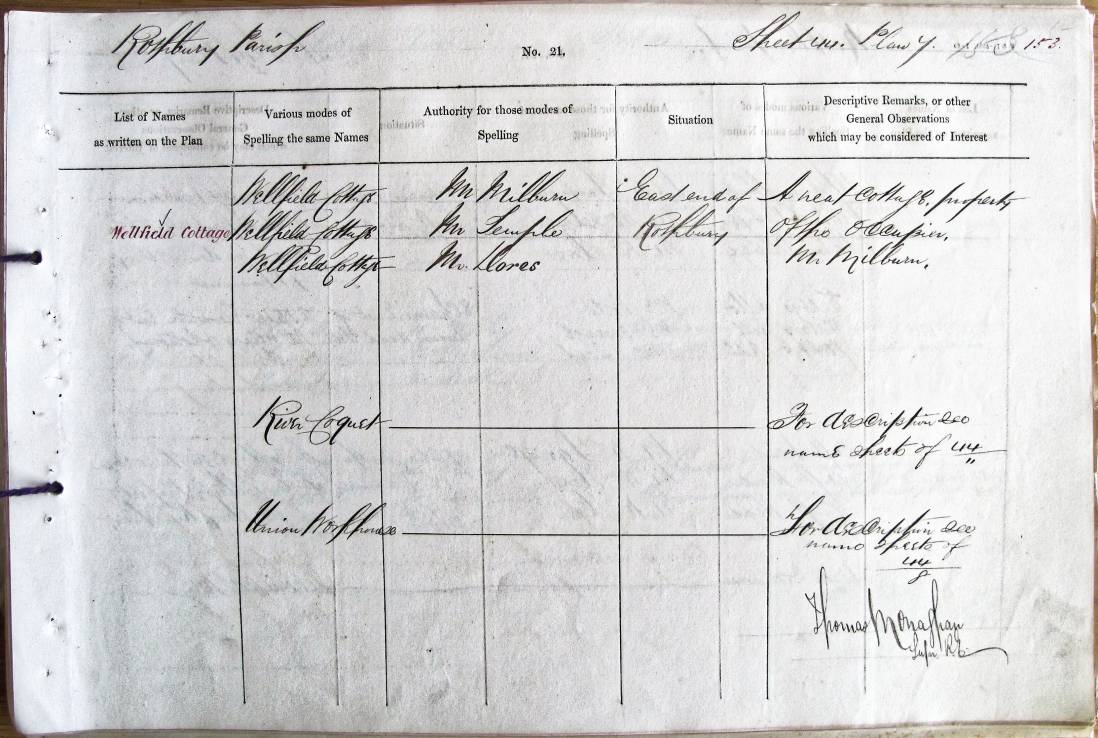 Rothbury Parish No. 21. Sheet 44. Plan 7. 153.
List of Names
as written on the Plan
Various modes of
Spelling the same Names
Authority for those modes of
Spelling
Situation
Descriptive Remarks, or other
General Observations
which may be considered of Interest
Wellfield Cottage Mr Milburn East end of A neat cottage, property
Wellfield Cottage Wellfield Cottage Mr Temple Rothbury of the Occupier,
Wellfield Cottage Mr. Dores Mr Milburn.
River Coquet For description see
name sheets of 44/11
Union Workhouse For description see
name sheets of
44/8
Thomas Monaghan
Sapr. R.E.